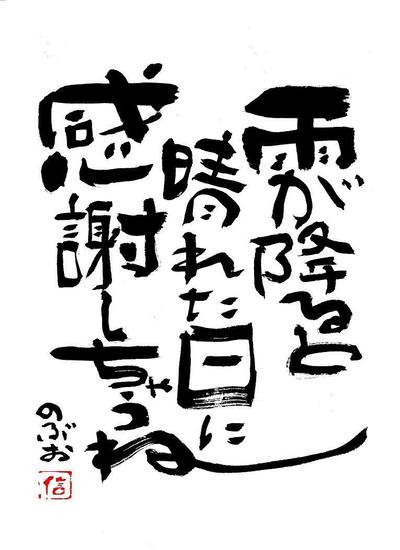 雨が降ると
晴れた日に
感謝しちゃうね
のぶお
信